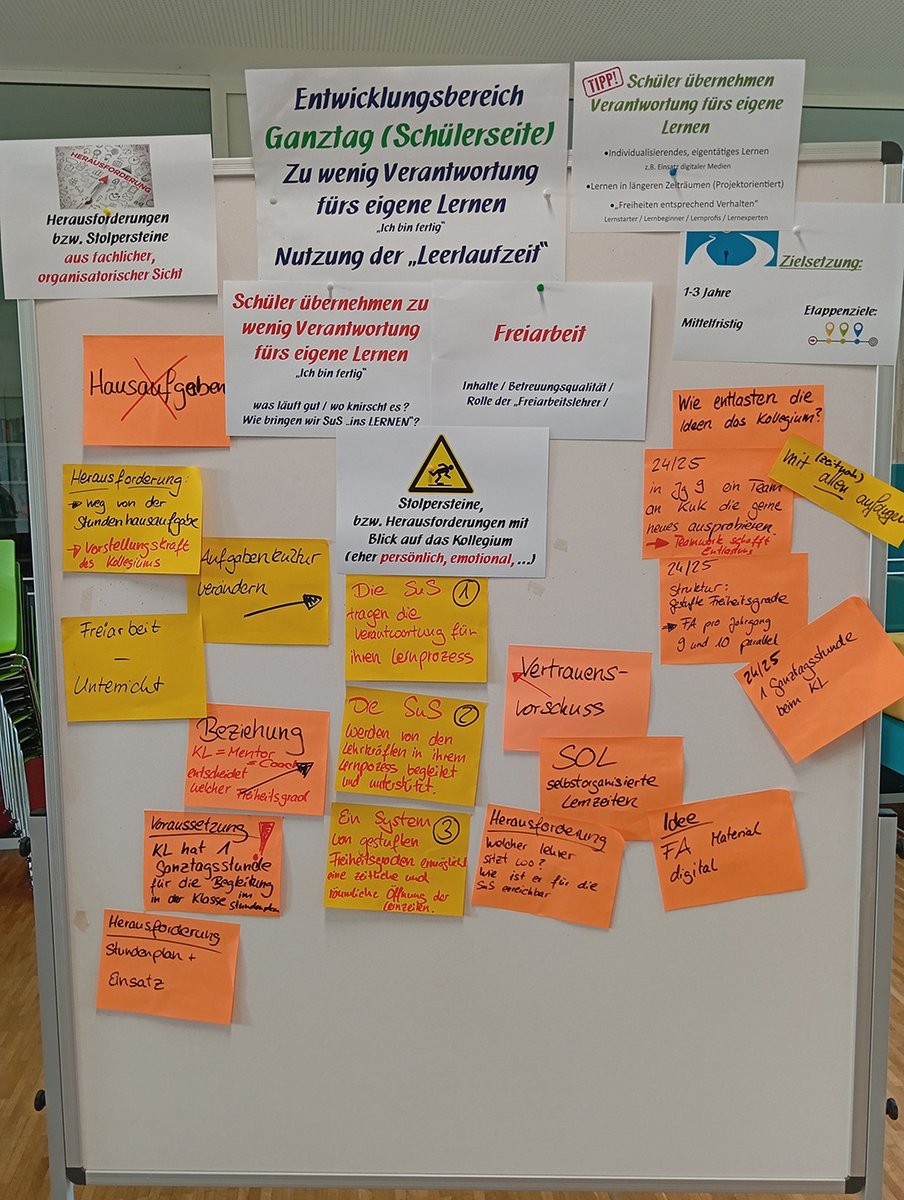 Entwicklungsbereich
Ganztag (Schülerseite)
Zu wenig Verantwortung
fürs eigene Lernen
„Ich bin fertig“
Nutzung der „Leerlaufzeit“
TIPP!
Schüler übernehmen
Verantwortung fürs eigene
Lernen
•Individualisierendes, eigentätiges Lernen
z.B. Einsatz digitaler Medien
•Lernen in längeren Zeiträumen (Projektorientiert)
•„Freiheiten entsprechend Verhalten“
Lernstarter / Lernbeginner / Lernprofis / Lernexperten
HERAUSFORDERUNG
Herausforderungen
bzw. Stolpersteine
aus fachlicher,
organisatorischer Sicht
Zielsetzung:
1-3 Jahre
Mittelfristig
Etappenziele:
Schüler übernehmen zu
wenig Verantwortung
fürs eigene Lernen
„Ich bin fertig“
was läuft gut / wo knirscht es ?
Wie bringen wir SuS „ins LERNEN“?
Freiarbeit
Inhalte / Betreuungsqualität /
Rolle der „Freiarbeitslehrer /
Stolpersteine,
bzw. Herausforderungen mit
Blick auf das Kollegium
(eher persönlich, emotional, ...)
Hausaufgaben
Herausforderung:
weg von der
Stundenhausaufgabe
Vorstellungskraft
des Kollegiums
Aufgabenkultur
verändern
Freiarbeit
–
Unterricht
Beziehung
KL = Mentor
= Coach
entscheidet
welcher Freiheitsgrad
Voraussetzung
KL hat 1
Ganztagsstunde
für die Begleitung
in der Klasse im
Stundenplan
Herausforderung
Stundenplan +
Einsatz
Die SuS 1
tragen die
Verantwortung für
ihren Lernprozess
Die SuS 2
werden von den
Lehrkräften in ihrem
Lernprozess begleitet
und unterstützt.
Ein System 3
von gestuften
Freiheitsgraden ermöglicht
eine zeitliche und
räumliche Öffnung der
Lernzeiten.
Vertrauens-
vorschuss
SOL
selbstorganisierte
Lernzeiten
Herausforderung
welcher Lehrer
sitzt wo?
Wie ist er für die
SuS erreichbar
Idee
FA Material
digital
Wie entlasten die
Ideen das Kollegium?
24/25
in Jg 9 ein Team
an KuK die gerne
neues ausprobieren
Teamwork schafft
Entlastung
mit (zeitnah)
allen anfangen
24/25
Struktur:
gestufte Freiheitsgrade
FA pro Jahrgang
9 und 10 parallel
24/25
1 Ganztagsstunde
beim KL